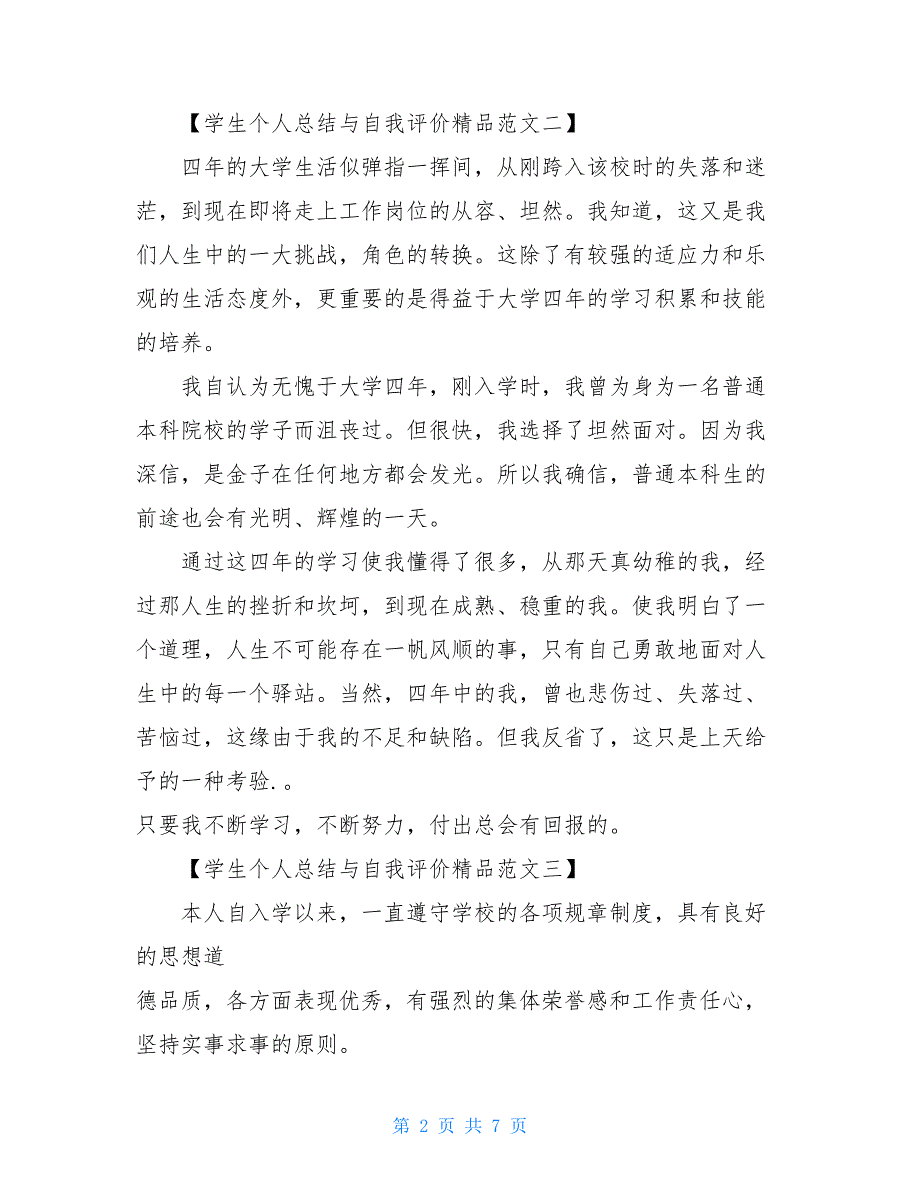 【学生个人总结与自我评价精品范文二】
四年的大学生活似弹指一挥间，从刚跨入该校时的失落和迷
茫，到现在即将走上工作岗位的从容、坦然。我知道，这又是我
们人生中的一大挑战，角色的转换。这除了有较强的适应力和乐
观的生活态度外，更重要的是得益于大学四年的学习积累和技能
的培养。
我自认为无愧于大学四年，刚入学时，我曾为身为一名普通
本科院校的学子而沮丧过。但很快，我选择了坦然面对。因为我
深信，是金子在任何地方都会发光。所以我确信，普通本科生的
前途也会有光明、辉煌的一天。
通过这四年的学习使我懂得了很多，从那天真幼稚的我，经
过那人生的挫折和坎坷，到现在成熟、稳重的我。使我明白了一
个道理，人生不可能存在一帆风顺的事，只有自己勇敢地面对人
生中的每一个驿站。当然，四年中的我，曾也悲伤过、失落过、
苦恼过，这缘由于我的不足和缺陷。但我反省了，这只是上天给
予的一种考验.。
只要我不断学习，不断努力，付出总会有回报的。
【学生个人总结与自我评价精品范文三】
本人自入学以来，一直遵守学校的各项规章制度，具有良好
的思想道
德品质，各方面表现优秀，有强烈的集体荣誉感和工作责任心，
坚持实事求事的原则。
第 2 页 共 7 页